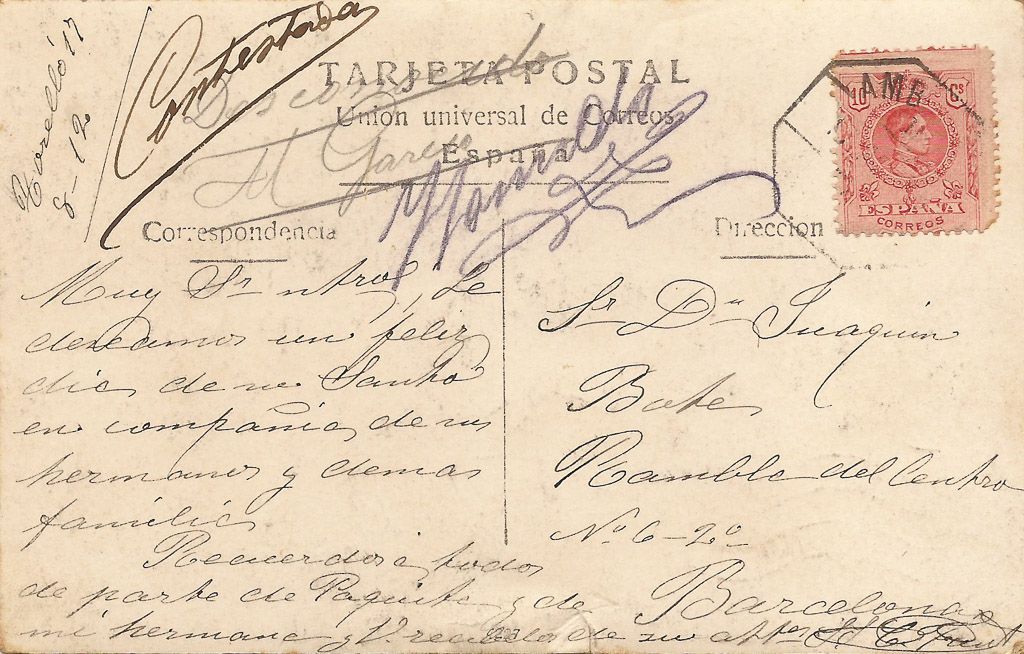 Torelló 17
8-12
Contestada
TARJETA POSTAL
Unión universal de Correos
España
Manuela
Correspondencia
Dirección
10 Cs
AMB
ESPAÑA
CORREOS
Muy Sr ntro, Le
deseamos un feliz
dia de su Santo
en compañia de sus
hermanos y demas
familia
Recuerdos á todos
de parte de Paquita y de
mi hermana y Vº de su affmo
Sr Dn Juaquin
Bate
Rambla del Centro
Nº 6-2º
Barcelona